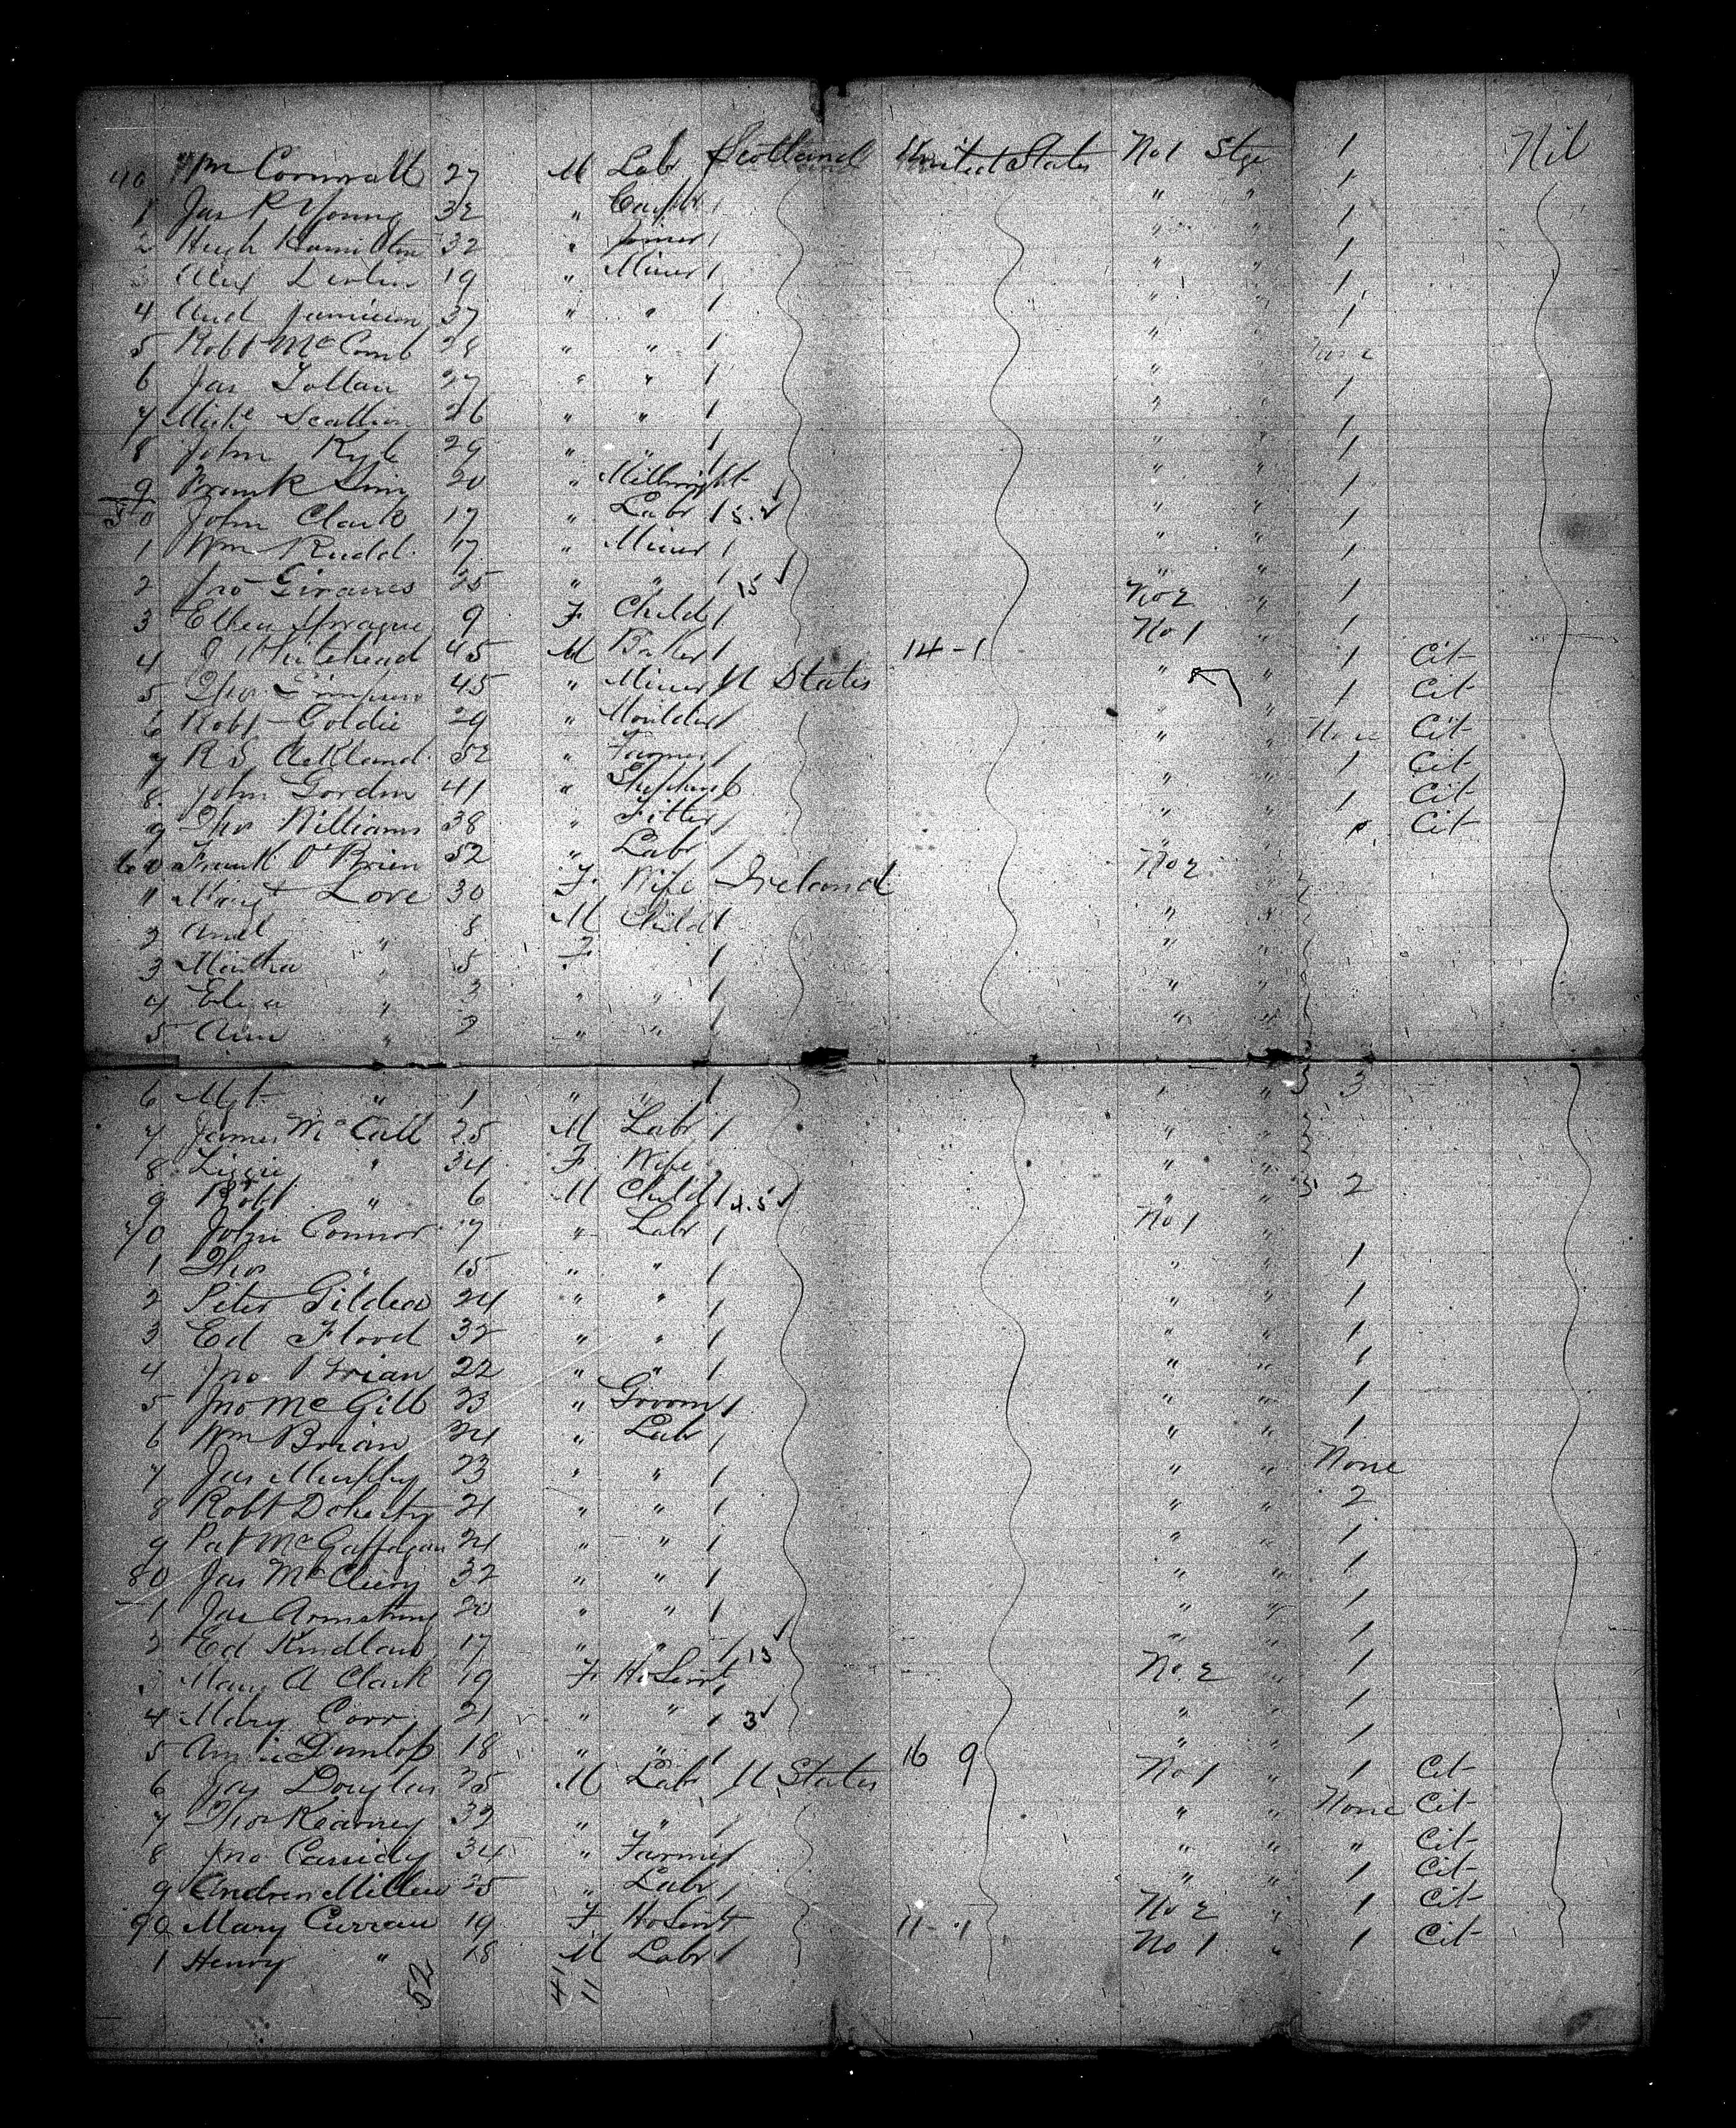 40 Wm Cornwall 27 M Labr Scotland United States No 1 Stge 1 Nil
1 Jas R Young 32 " Carptr 1 " " 1
2 Hugh Hamilton 32 " Joiner 1 " " 1
3 Alex Devlin 19 " Miner 1 " " 1
4 And Jamieson 37 " " 1 " " 1
5 Robt McComb 28 " " 1 " " 1
6 Jas 27 " " 1 " " None
7 Mich Scallion 26 " " 1 " " 1
8 John Kyle 29 " " 1 " " 1
9 Frank Sim 20 " Millwright " " 1
50 John Clark 17 " Labr 1 " " 1
1 Wm Rudd 17 " Miner 1 " " 1
2 Jno 25 " " 1 15 " " 1
3 Ellen Sprague 9 F Child 1 No 2 " 1
4 J Whitehead 45 M Baker 1 14 - 1 No 1 " 1
5 Thos Simpson 45 " Miner U States " " 1 Cit
6 Robt Goldie 29 " Moulder 1 " " 1 Cit
7 R S Ackland 52 " Farmer 1 " " None Cit
8 John Gordon 41 " " " 1 Cit
9 Thos Williams 38 " Fitter 1 " " 1 Cit
60 Frank O'Brien 52 " Labr 1 " " Cit
" Margt Love 30 F Wife Ireland No 2
2 " 8 M Child 1 " "
3 Martha " 5 F 1 " "
4 Eliza " 3 " " 1 " "
5 Ann " 2 " " 1 " "
6 Mgt " 1 " " 1 " " 3
7 James McCall 25 M Labr 1 " "
8 Lizzie " 34 F Wife " "
9 Robt " 6 M Child 1 4.5 " " 2
70 John Connor 17 " Labr 1 No 1 "
1 Thos " 15 " " 1 " " 1
2 Peter Gildea 24 " " 1 " " 1
3 Ed Flood 32 " " 1 " " 1
4 Jno 22 " " 1 " " 1
5 Jno McGill 23 " Groom 1 " " 1
6 Wm Brian 24 " Labr 1 " " 1
7 Jas Murphy 23 " " 1 " " None
8 Robt Doherty 21 " " 1 " " 2
9 Pat McGaffagan 21 " " 1 " " 1
80 Jas 32 " " 1 " " 1
1 Jas Armstrong 20 " " 1 " " 1
2 Ed Kindlan 17 " " 1 13 " " 1
3 Mary A Clark 19 F HoServt 1 No 2 " 1
4 Mary Corr 21 " " 1 3 " " 1
5 Annie Dunlop 18 " " 1 16 9 " " 1
6 Jas Douglas 35 M Labr U States No 1 " 1 Cit
7 Thos Kearney 32 " " 1 " " None Cit
8 Jno Cassidy 34 " Farmer " " " Cit
9 Andrew Miller 25 " Labr 1 " " 1 Cit
90 Mary Curran 19 F HoServt 11 - 1 No 2 " 1 Cit
1 Henry " 18 M Labr 1 No 1 " 1 Cit
52 41 11